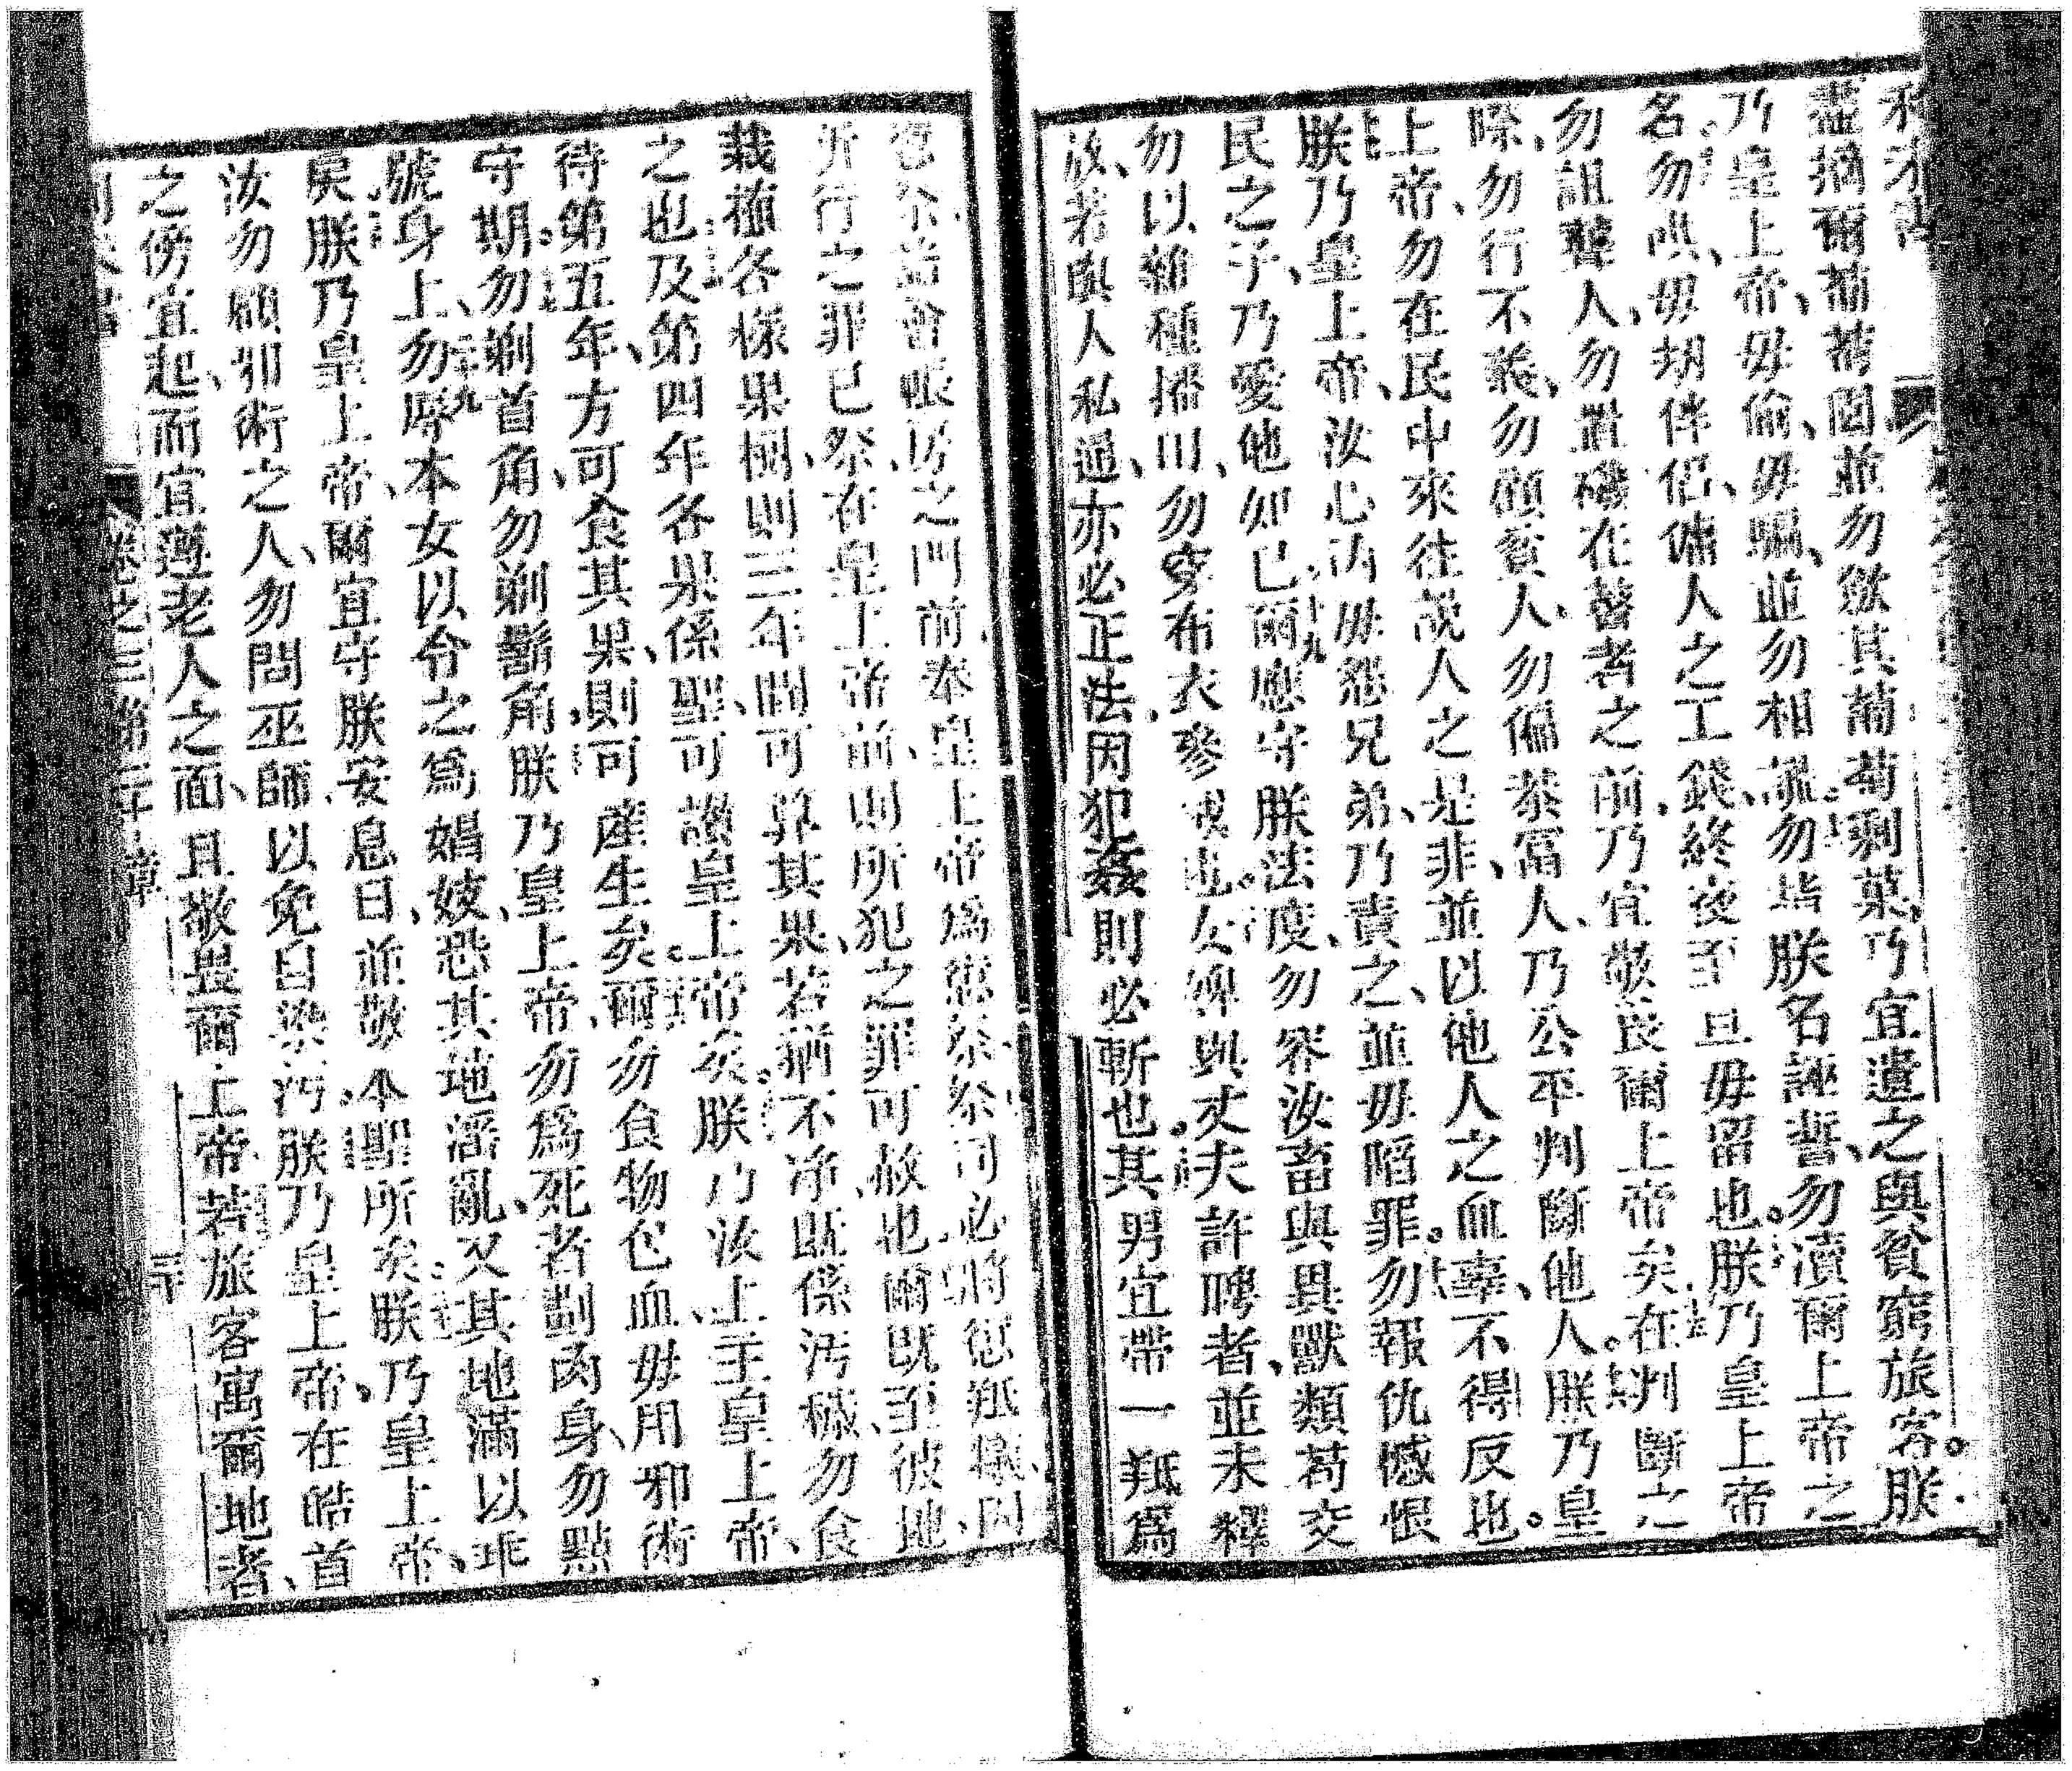 盡摘爾葡萄園並勿斂其葡萄剩菓、乃宜遺之與貧窮旅客。朕
乃皇上帝、毋偷、毋騙、並勿相謊。勿指朕名誣誓、勿瀆爾上帝之
名。勿哄、毋刼伴侶、傭人之工錢、終夜至旦毋留也。朕乃皇上帝
勿詛聾人、勿置磯在瞽者之前、乃宜敬畏爾上帝矣。在判斷之
際、勿行不義、勿顧貧人、勿偏恭富人、乃公平判斷他人。朕乃皇
上帝、勿在民中來往説人之是非、並以他人之血辜不得反也。
朕乃皇上帝、汝心内毋怨兄弟、乃責之、並毋蹈罪。勿報仇憾恨
民之子、乃愛他如己。爾應守朕法度、勿容汝畜與異獸類苟交
勿以雜種播田、勿穿布衣參絨也。女婢與丈夫許聘者、並未釋
放、若與人私通、亦必正法、因犯姦則必斬也。其男宜帶一羝爲
愆祭詣會帳房之門前奉皇上帝爲愆祭、祭司必將愆羝攘因
所行之罪已祭、在皇上帝前、則所犯之罪可赦也。爾旣至彼地、
栽種各樣果樹、則三年間可算其果、若猶不净、旣係汚穢、勿食
之也。及第四年各果係聖、可讃皇上帝矣。朕乃汝上主皇上帝、
待第五年、方可食其果、則可產生矣。爾勿食物包血、毋用邪術
守期。勿剃首角、勿剃鬍角、朕乃皇上帝、勿爲死者劃肉身、勿點
號身上、勿辱本女以令之爲娼妓、恐其地滛亂、又其地滿以非
戾。朕乃皇上帝、爾宜守朕安息日、並敬本聖所矣。朕乃皇上帝、
汝勿願邪術之人、勿問巫師、以免自染汚。朕乃皇上帝、在皓首
之傍宜起、而宜遵老人之面、且敬畏爾上帝。若旅客寓爾地者、
卷之三第二十章